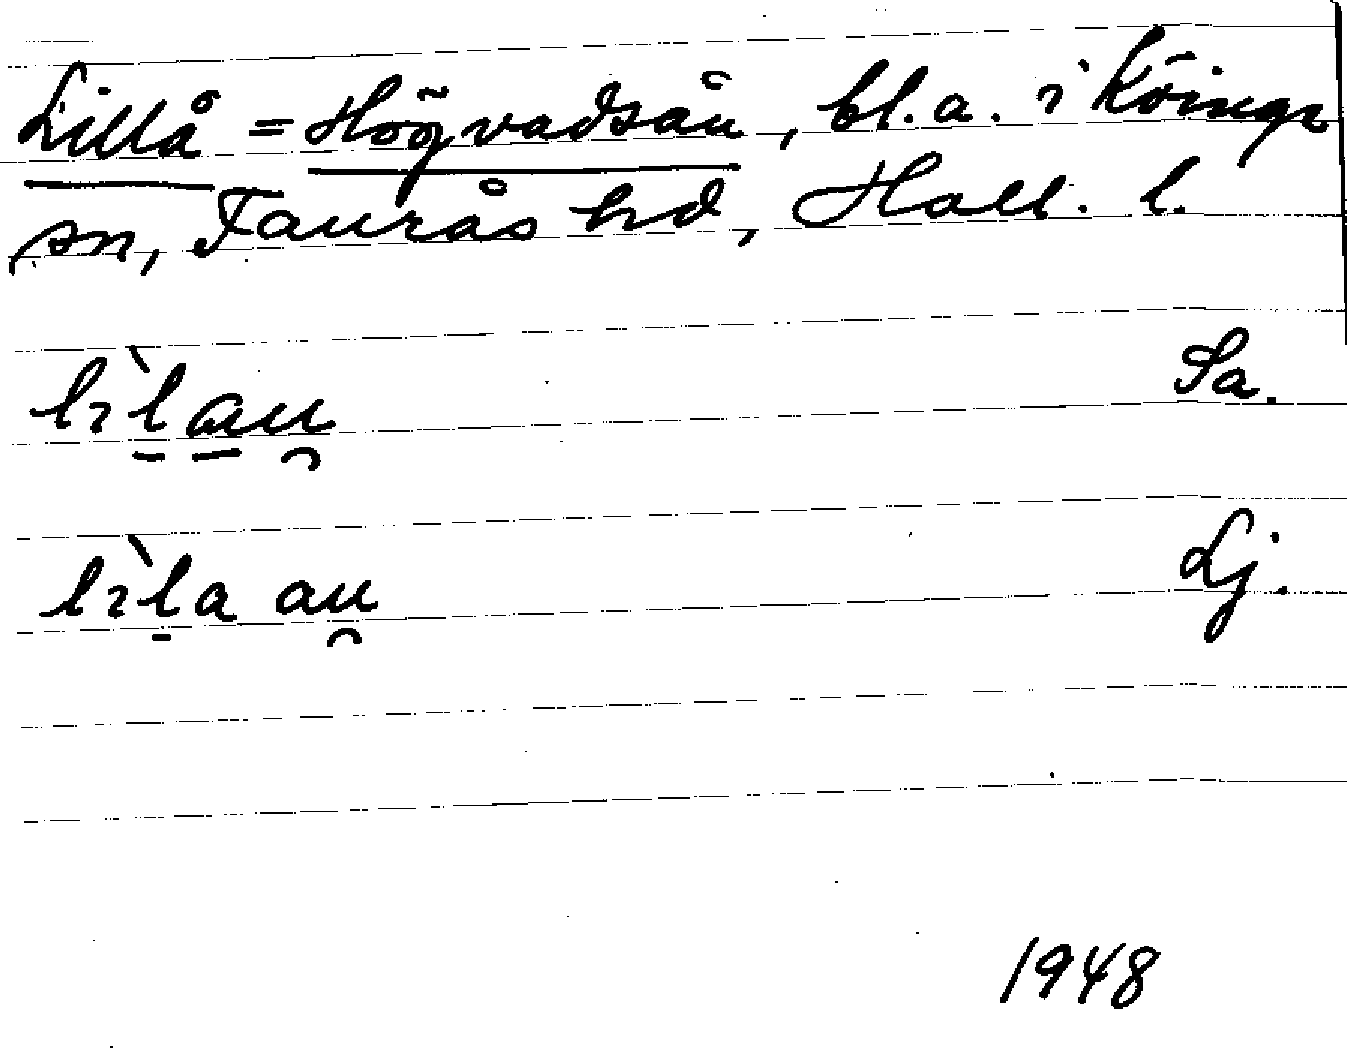 Lillå = Högvadsån, bl.a. i Köinge
sn, Faurås hd, Hall. l.
lìl̠a̠u̯ Sa.
lìl̠a au̯ Lj.
1948